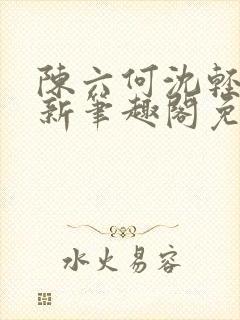 陳六何沈輕
新筆趣閣免
水火易容